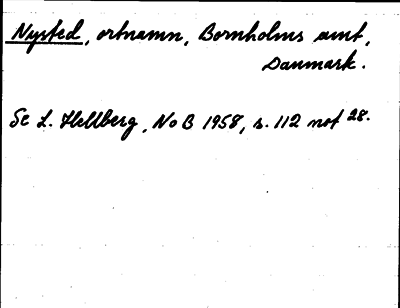 Nysted, ortnamn, Bornholms amt,
Danmark.
Se L. Hellberg, NoB 1958, s. 112 not 28.